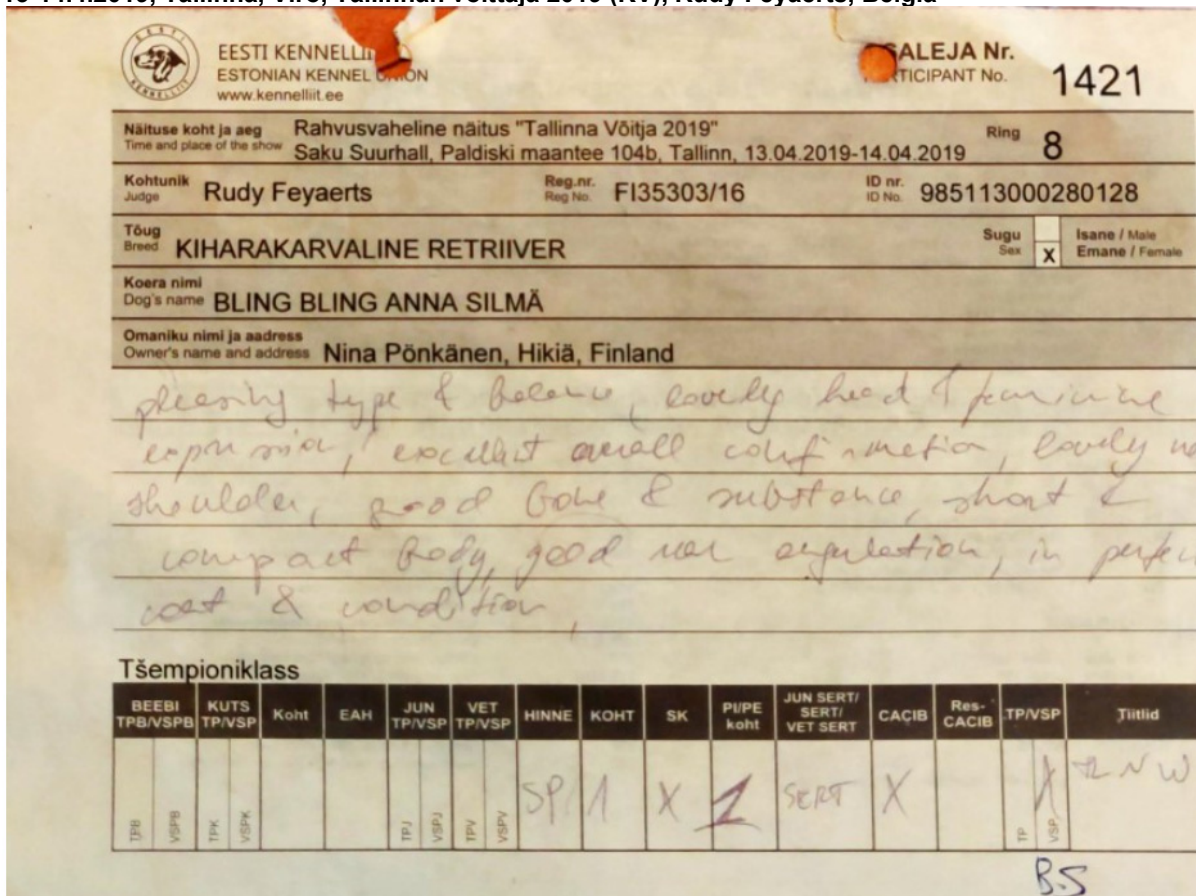 13-14.4.2019, Tallinna, Viro, Tallinnan Voittaja 2019 (RV), Rudy Feyaerts, Belgia
EESTI KENNELLII
OSALEJA Nr.
ESTONIAN KENNEL UNION
PARTICIPANT No.
1421
www.kennelliit.ee
EESTI KENNELLIIT
Näituse koht ja aeg Rahvusvaheline näitus "Tallinna Võitja 2019" Ring 8
Time and place of the show Saku Suurhall, Paldiski maantee 104b, Tallinn, 13.04.2019-14.04.2019
Kohtunik Rudy Feyaerts Reg.nr. FI35303/16 ID nr. 985113000280128
Judge Reg No. ID No.
Tõug KIHARAKARVALINE RETRIIVER Sugu Isane / Male
Breed Sex X Emane / Female
Koera nimi
Dog's name BLING BLING ANNA SILMÄ
Omaniku nimi ja aadress
Owner's name and address Nina Pönkänen, Hikiä, Finland
pleasing type & balance, lovely head & feminine
expression, excellent overall confirmation, lovely
shoulder, good bone & substance, short &
compact body, good rear angulation, in
coat & condition,
Tšempioniklass
BEEBI TPB/VSPB KUTS TP/VSP Koht EAH JUN TP/VSP VET TP/VSP HINNE KOHT SK PI/PE koht JUN SERT/ SERT/ VET SERT CACIB Res-CACIB TP/VSP Tiitlid
TPB VSPB TPK VSPK TPJ VSPJ TPV VSPV SP 1 X 1 SERT X TP VSP X TLNW
B.S